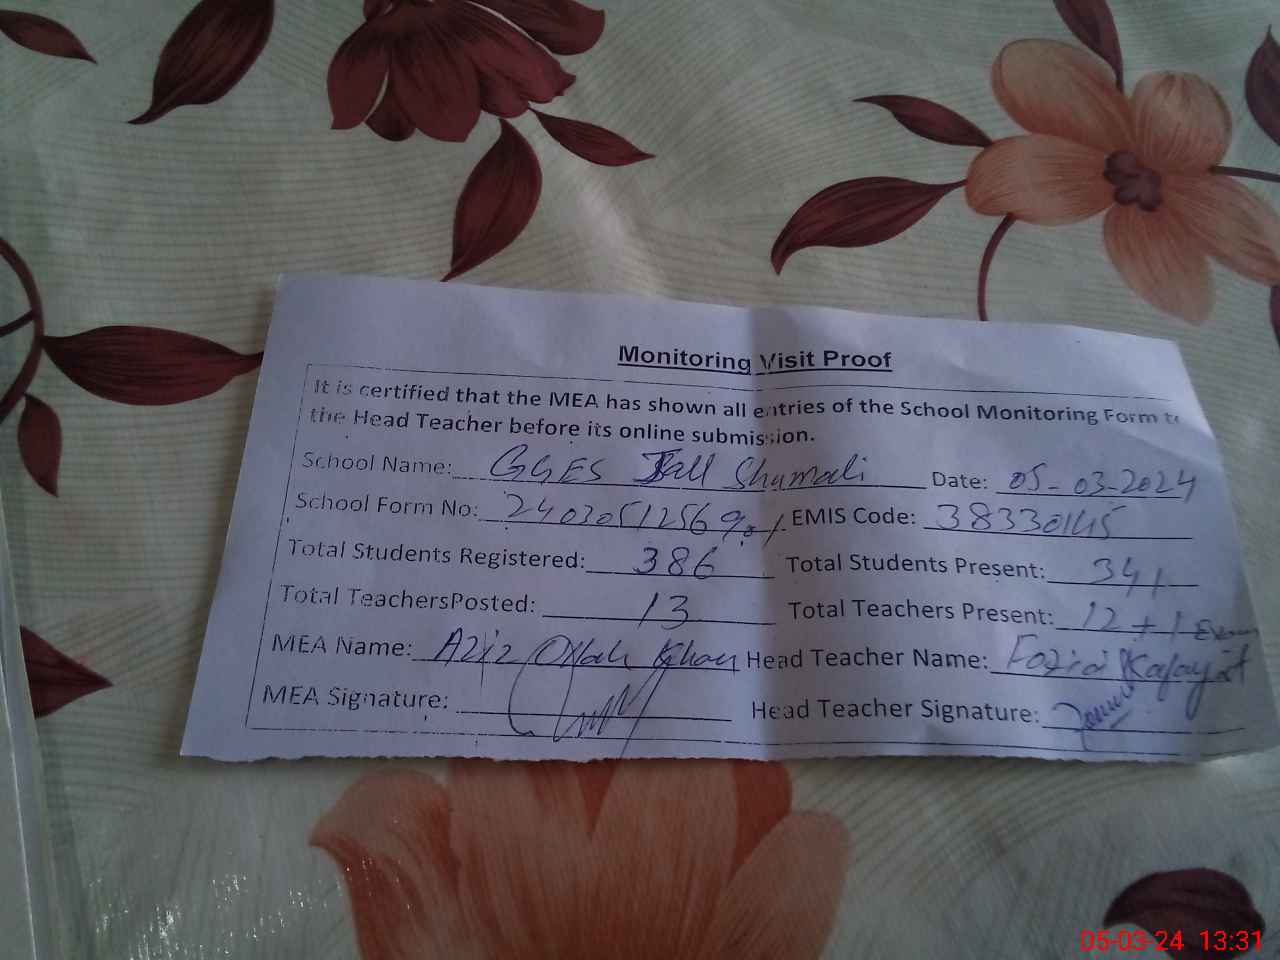 Monitoring Visit Proof
It is certified that the MEA has shown all entries of the School Monitoring Form to
the Head Teacher before its online submission.
School Name: GGES Jall Shumali Date: 05-03-2024
School Form No: 24030512569 EMIS Code: 38330145
Total Students Registered: 386 Total Students Present: 341
Total TeachersPosted: 13 Total Teachers Present: 12 + 1
MEA Name: Aziz Ullah Khan Head Teacher Name: Fozia Kafayat
MEA Signature: Head Teacher Signature:
05-03-24 13:31